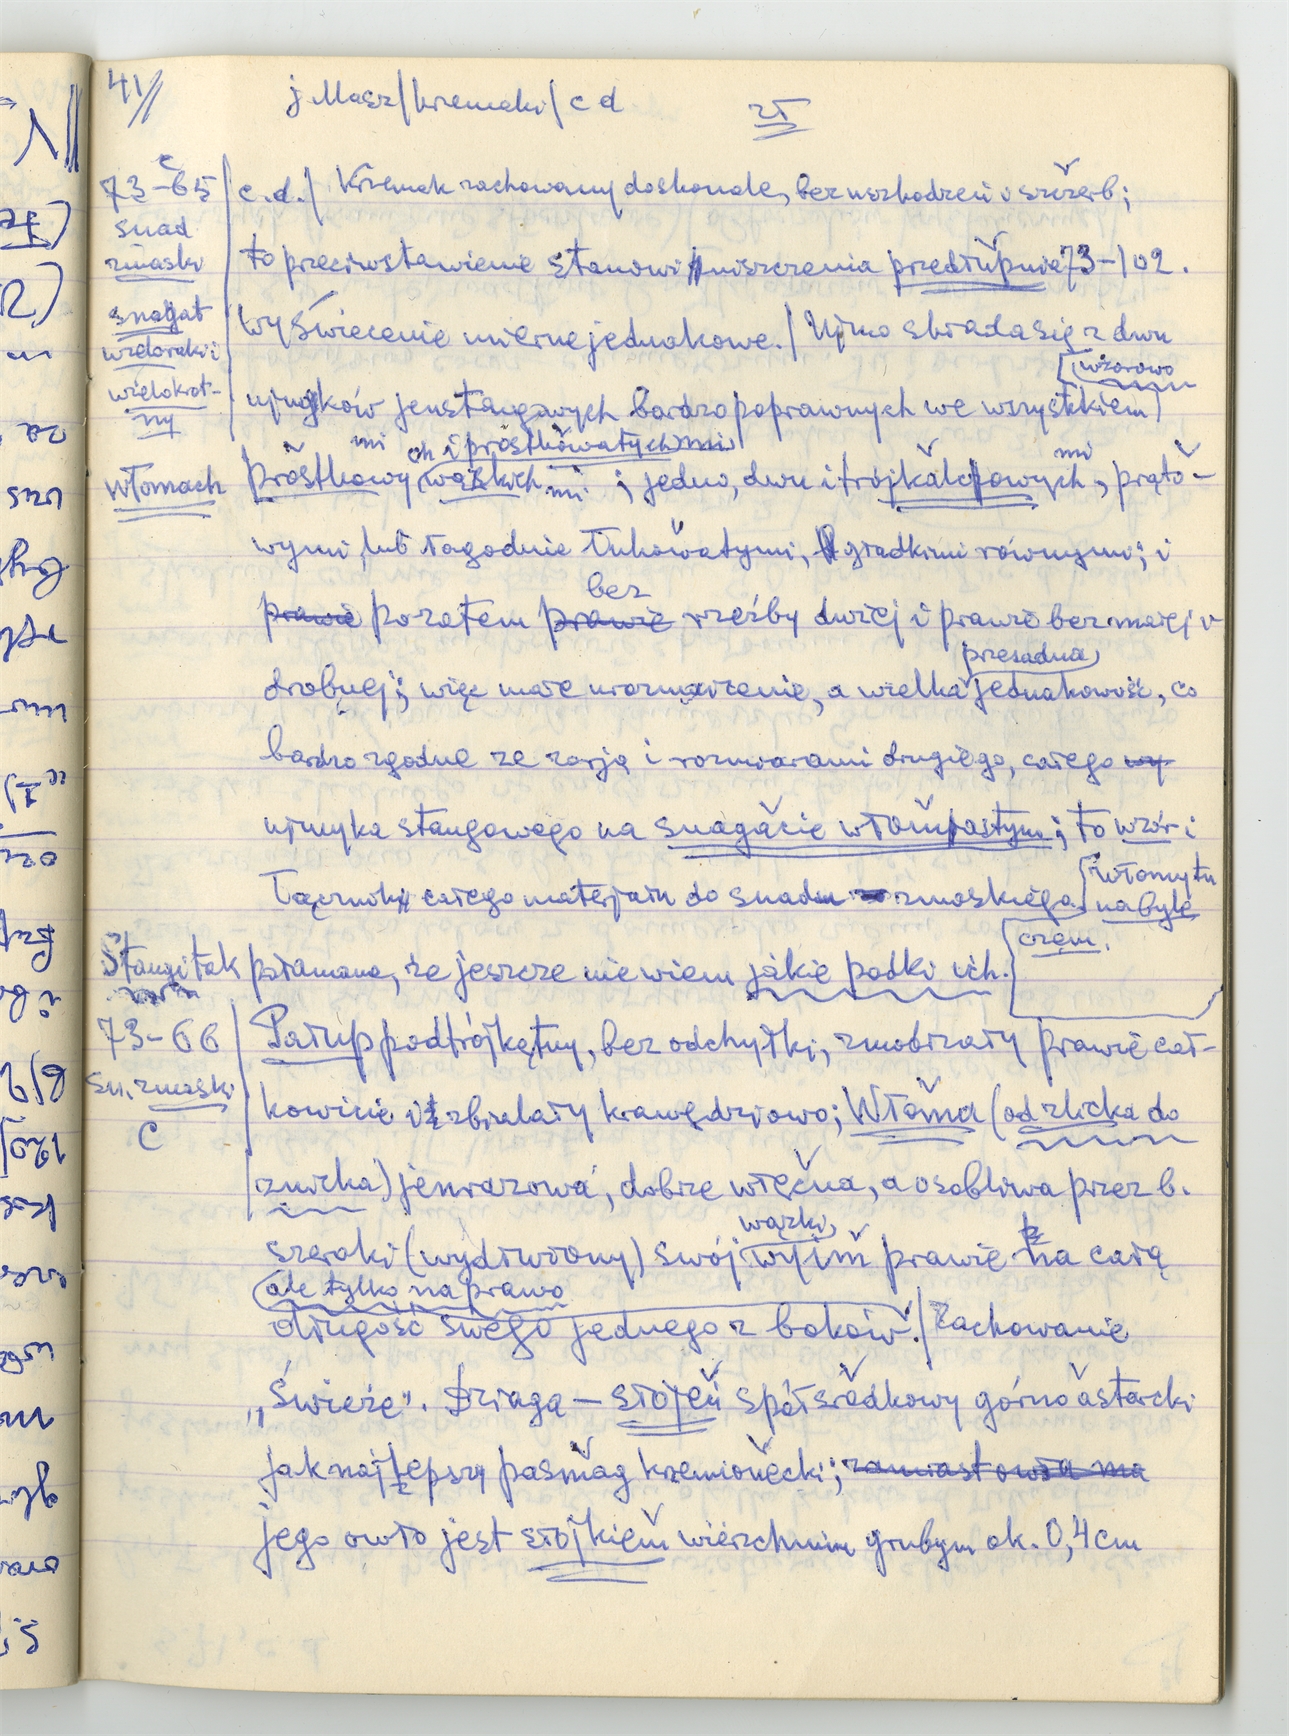 41//
j Masz/krzemaki/c d
zł
73-65 c
snad
zmaski
snagat
wieloraki i
wielokrot-
ny
c.d./ Krzemak zachowany doskonale, bez uszkodzeń i szczerb;
to przeciwstawienie stanowi zniszczenia przedłupnie 73-102.
Wyświecenie mierne jednakowe./ Ujmo składa się z dwu
[wzorowo
ujmyków jenstangowych bardzo poprawnych we wszystkiem)
mi ch i prostkowatych mi
włomach
prostkowy wąskich mi ; jedno, dwu i trójkałdpowych mi, prąto-
wymi lub łagodnie łukowatymi, gładkimi równymi; i
bez
prawie pozatem prawie rzeźby dużej i prawie bez małej i
przesadna
drobnej; więc małe urozmaicenie, a wielka jednakowość, co
bardzo zgodne ze zorją i rozmiarami drugiego, całego
ujmyka stangowego na snagacie włompastym; to wzór i
łącznik całego materjału do snadu zmaskiego.
włomy tu
nabyle
czem.
Stangi tak połamane, że jeszcze nie wiem jakie padki ich.
73-66
sn. zmaski
c
Patup podtrójkętny, bez odchyłki, zmobrzały prawie cał-
kowicie i zbielały krawędziowo; Włoma (od zlicka do
znicka) jenrazowa, dobrze więcna, a osobliwa przez b.
wązki,
szeroki (wydłużony) swój wyim prawie na całą
(ale tylko na prawo
długość swego jednego z boków./ Zachowanie
„świeże". Dziaga – stojeń spółśradkowy górnoastarcki
jak najlepszy pasmag krzemionecki; zamiast owła ma
jego owło jest stojkiem wierzchnim grubym ok. 0,4 cm